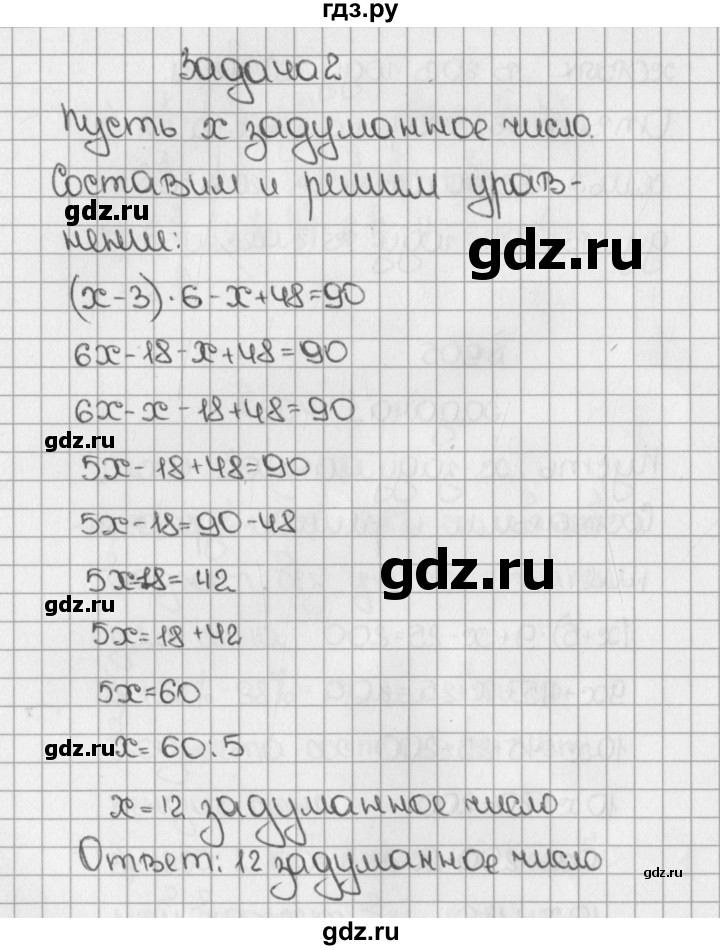 гдз.ру
Задача 2
Пусть x задуманное число.
Составим и решим урав-
gdz.ru
нение:
gdz.ru
(x-3)·6-x+48=90
6x-18-x+48=90
6x-x-18+48=90
gdz.ru
5x-18+48=90
5x-18=90-48
5x-18=42
gdz.ru
gdz.ru
5x=18+42
5x=60
gdz.ru
x=60:5
x=12 задуманное число
Ответ: 12 задуманное число
gdz.ru
gdz.ru